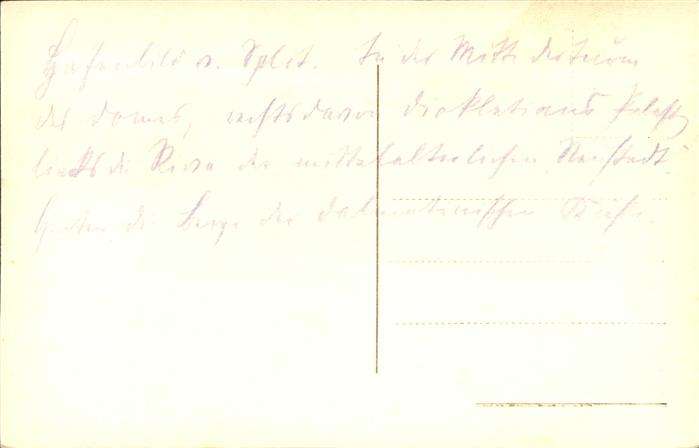 Hafenbild v. Split. In der Mitte der Turm
des Domes, rechts davon Diokletians Palast,
links die Riva der mittelalterlichen Neustadt.
Hinten die Berge der dalmatinischen Küste.